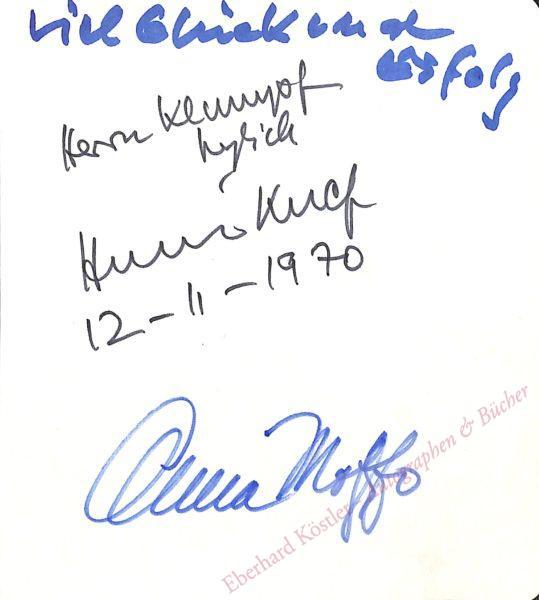 Viel Glück und
Erfolg
Herrn Kempf
herzlich
12-11-1970
Anna Moffo
Eberhard Köstler Autographen & Bücher